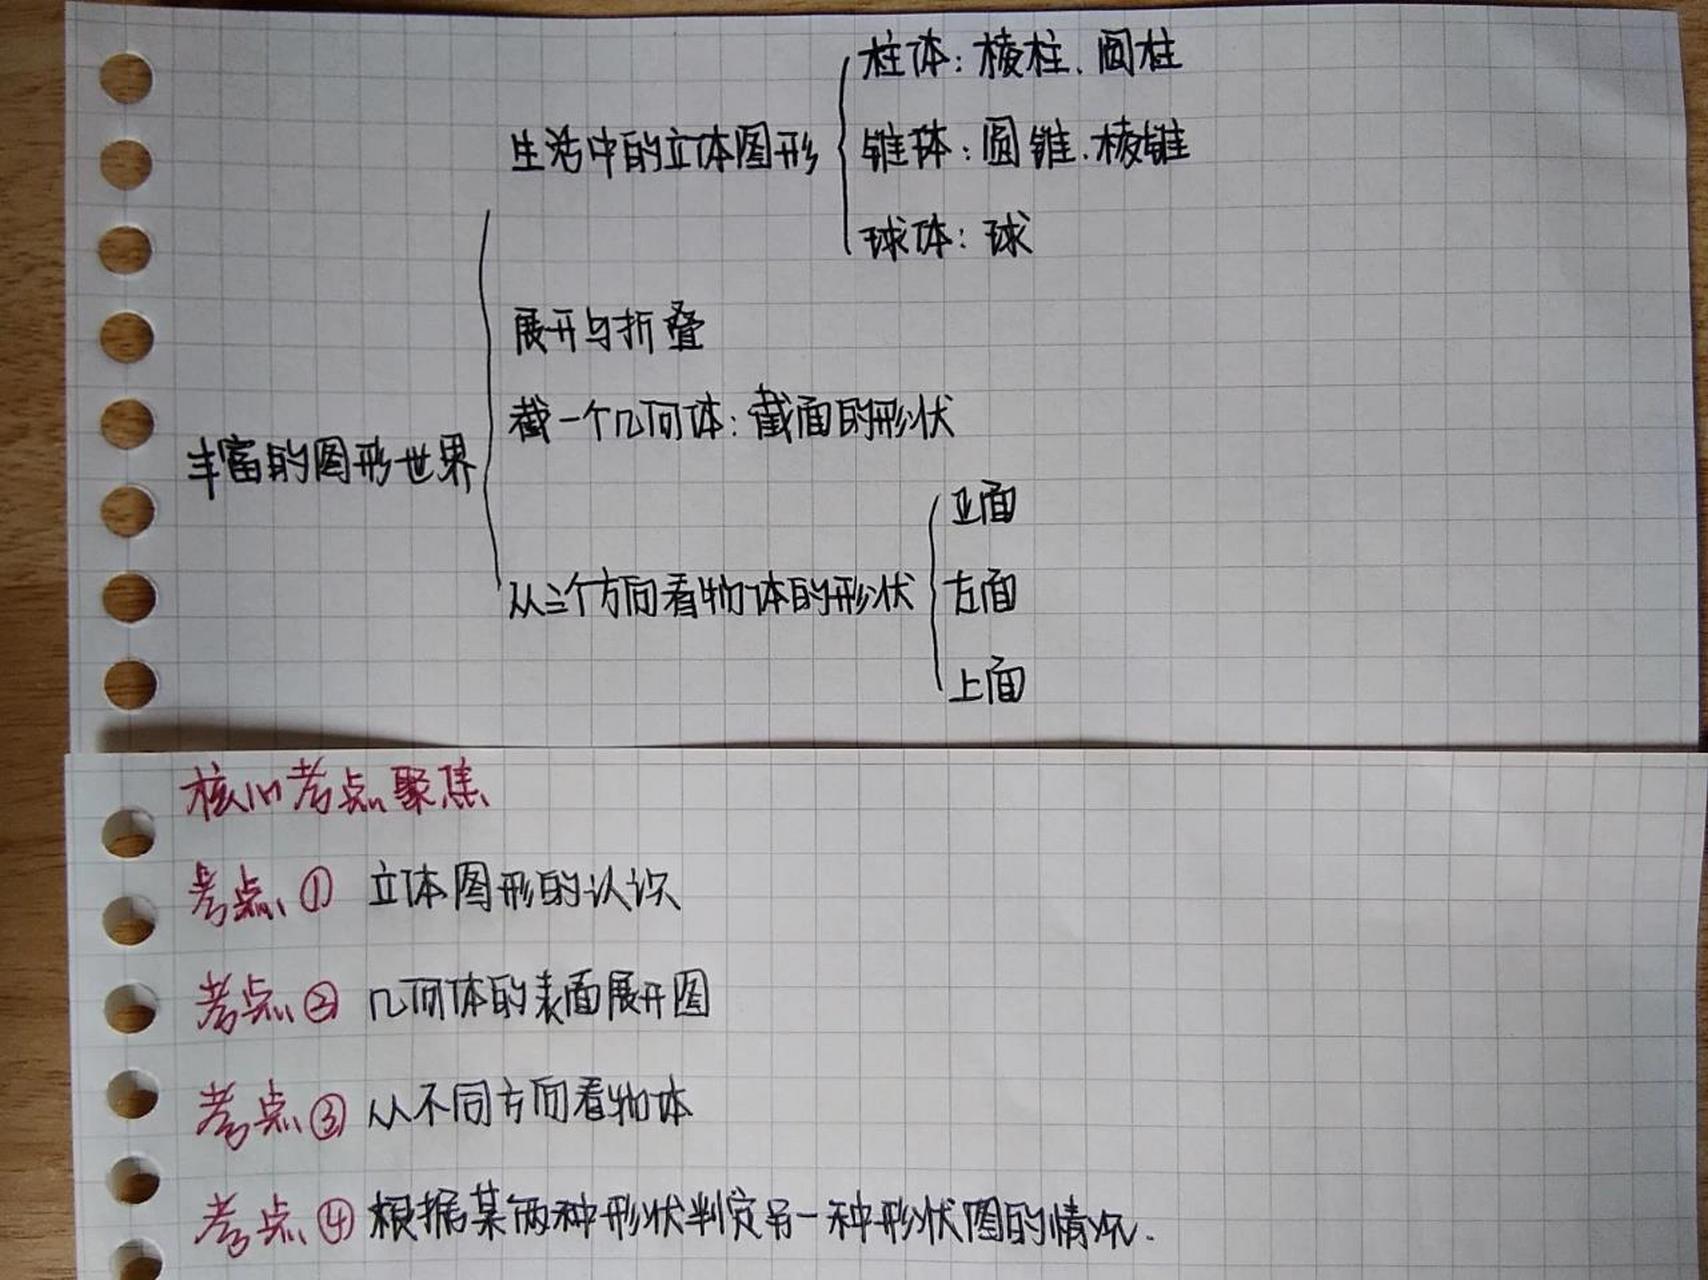 柱体：棱柱、圆柱
生活中的立体图形
锥体：圆锥、棱锥
球体：球
展开与折叠
截一个几何体：截面的形状
丰富的图形世界
正面
从三个方向看物体的形状
左面
上面
核心考点聚焦
考点① 立体图形的认识
考点② 几何体的表面展开图
考点③ 从不同方向看物体
考点④ 根据某两种形状判定另一种形状图的情况.